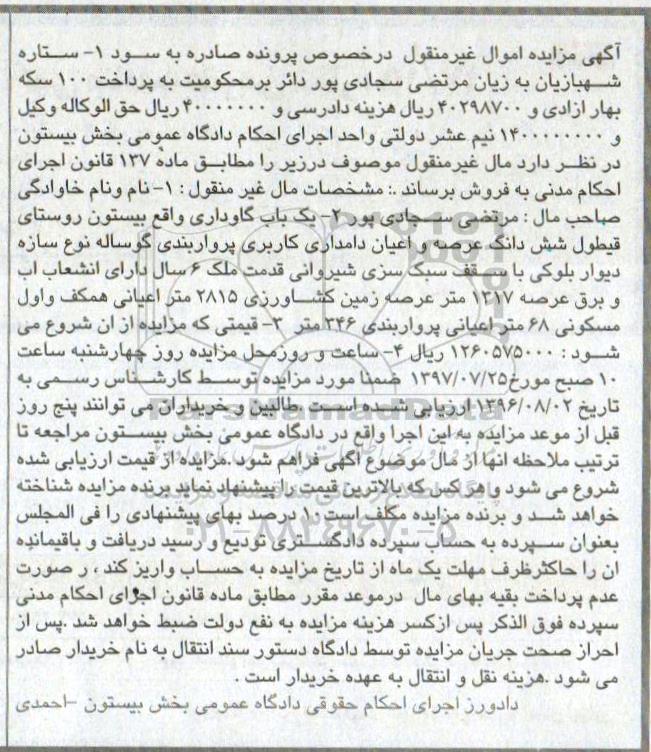 آگهی مزایده اموال غیرمنقول درخصوص پرونده صادره به سود ۱- ستاره
شهبازیان به زیان مرتضی سجادی پور دائر برمحکومیت به پرداخت ۱۰۰ سکه
بهار ازادی و ۴۰۲۹۸۷۰۰ ریال هزینه دادرسی و ۴۰۰۰۰۰۰۰ ریال حق الوکاله وکیل
و ۱۴۰۰۰۰۰۰۰۰ نیم عشر دولتی واحد اجرای احکام دادگاه عمومی بخش بیستون
در نظر دارد مال غیرمنقول موصوف درزیر را مطابق ماده ۱۳۷ قانون اجرای
احکام مدنی به فروش برساند .: مشخصات مال غیر منقول : ۱- نام ونام خاوادگی
صاحب مال : مرتضی سجادی پور ۲- یک باب گاوداری واقع بیستون روستای
قیطول شش دانگ عرصه و اعیان دامداری کاربری پرواربندی گوساله نوع سازه
دیوار بلوکی با سقف سبک سزی شیروانی قدمت ملک ۶ سال دارای انشعاب اب
و برق عرصه ۱۳۱۷ متر عرصه زمین کشاورزی ۲۸۱۵ متر اعیانی همکف واول
مسکونی ۶۸ متر اعیانی پرواربندی ۳۴۶ متر ۳- قیمتی که مزایده از ان شروع می
شود : ۱۲۶۰۵۷۵۰۰۰ ریال ۴- ساعت و روزومحل مزایده روز چهارشنبه ساعت
۱۰ صبح مورخ۱۳۹۷/۰۷/۲۵ ضمنا مورد مزایده توسط کارشناس رسمی به
تاریخ ۱۳۹۶/۰۸/۰۲ ارزیابی شده است . طالبین و خریداران می توانند پنج روز
قبل از موعد مزایده به این اجرا واقع در دادگاه عمومی بخش بیستون مراجعه تا
ترتیب ملاحظه انها از مال موضوع آگهی فراهم شود .مزایده از قیمت ارزیابی شده
شروع می شود و هر کس که بالاترین قیمت را پیشنهاد نماید برنده مزایده شناخته
خواهد شد و برنده مزایده مکلف است۱۰ درصد بهای پیشنهادی را فی المجلس
بعنوان سپرده به حساب سپرده دادگستری تودیع و رسید دریافت و باقیمانده
ان را حاکثرظرف مهلت یک ماه از تاریخ مزایده به حساب واریز کند ، ر صورت
عدم پرداخت بقیه بهای مال درموعد مقرر مطابق ماده قانون اجرای احکام مدنی
سپرده فوق الذکر پس ازکسر هزینه مزایده به نفع دولت ضبط خواهد شد .پس از
احراز صحت جریان مزایده توسط دادگاه دستور سند انتقال به نام خریدار صادر
می شود .هزینه نقل و انتقال به عهده خریدار است .
دادورز اجرای احکام حقوقی دادگاه عمومی بخش بیستون –احمدی
ParsNamadData
۰۲۱-۸۸۳۴۹۶۷۰-۵